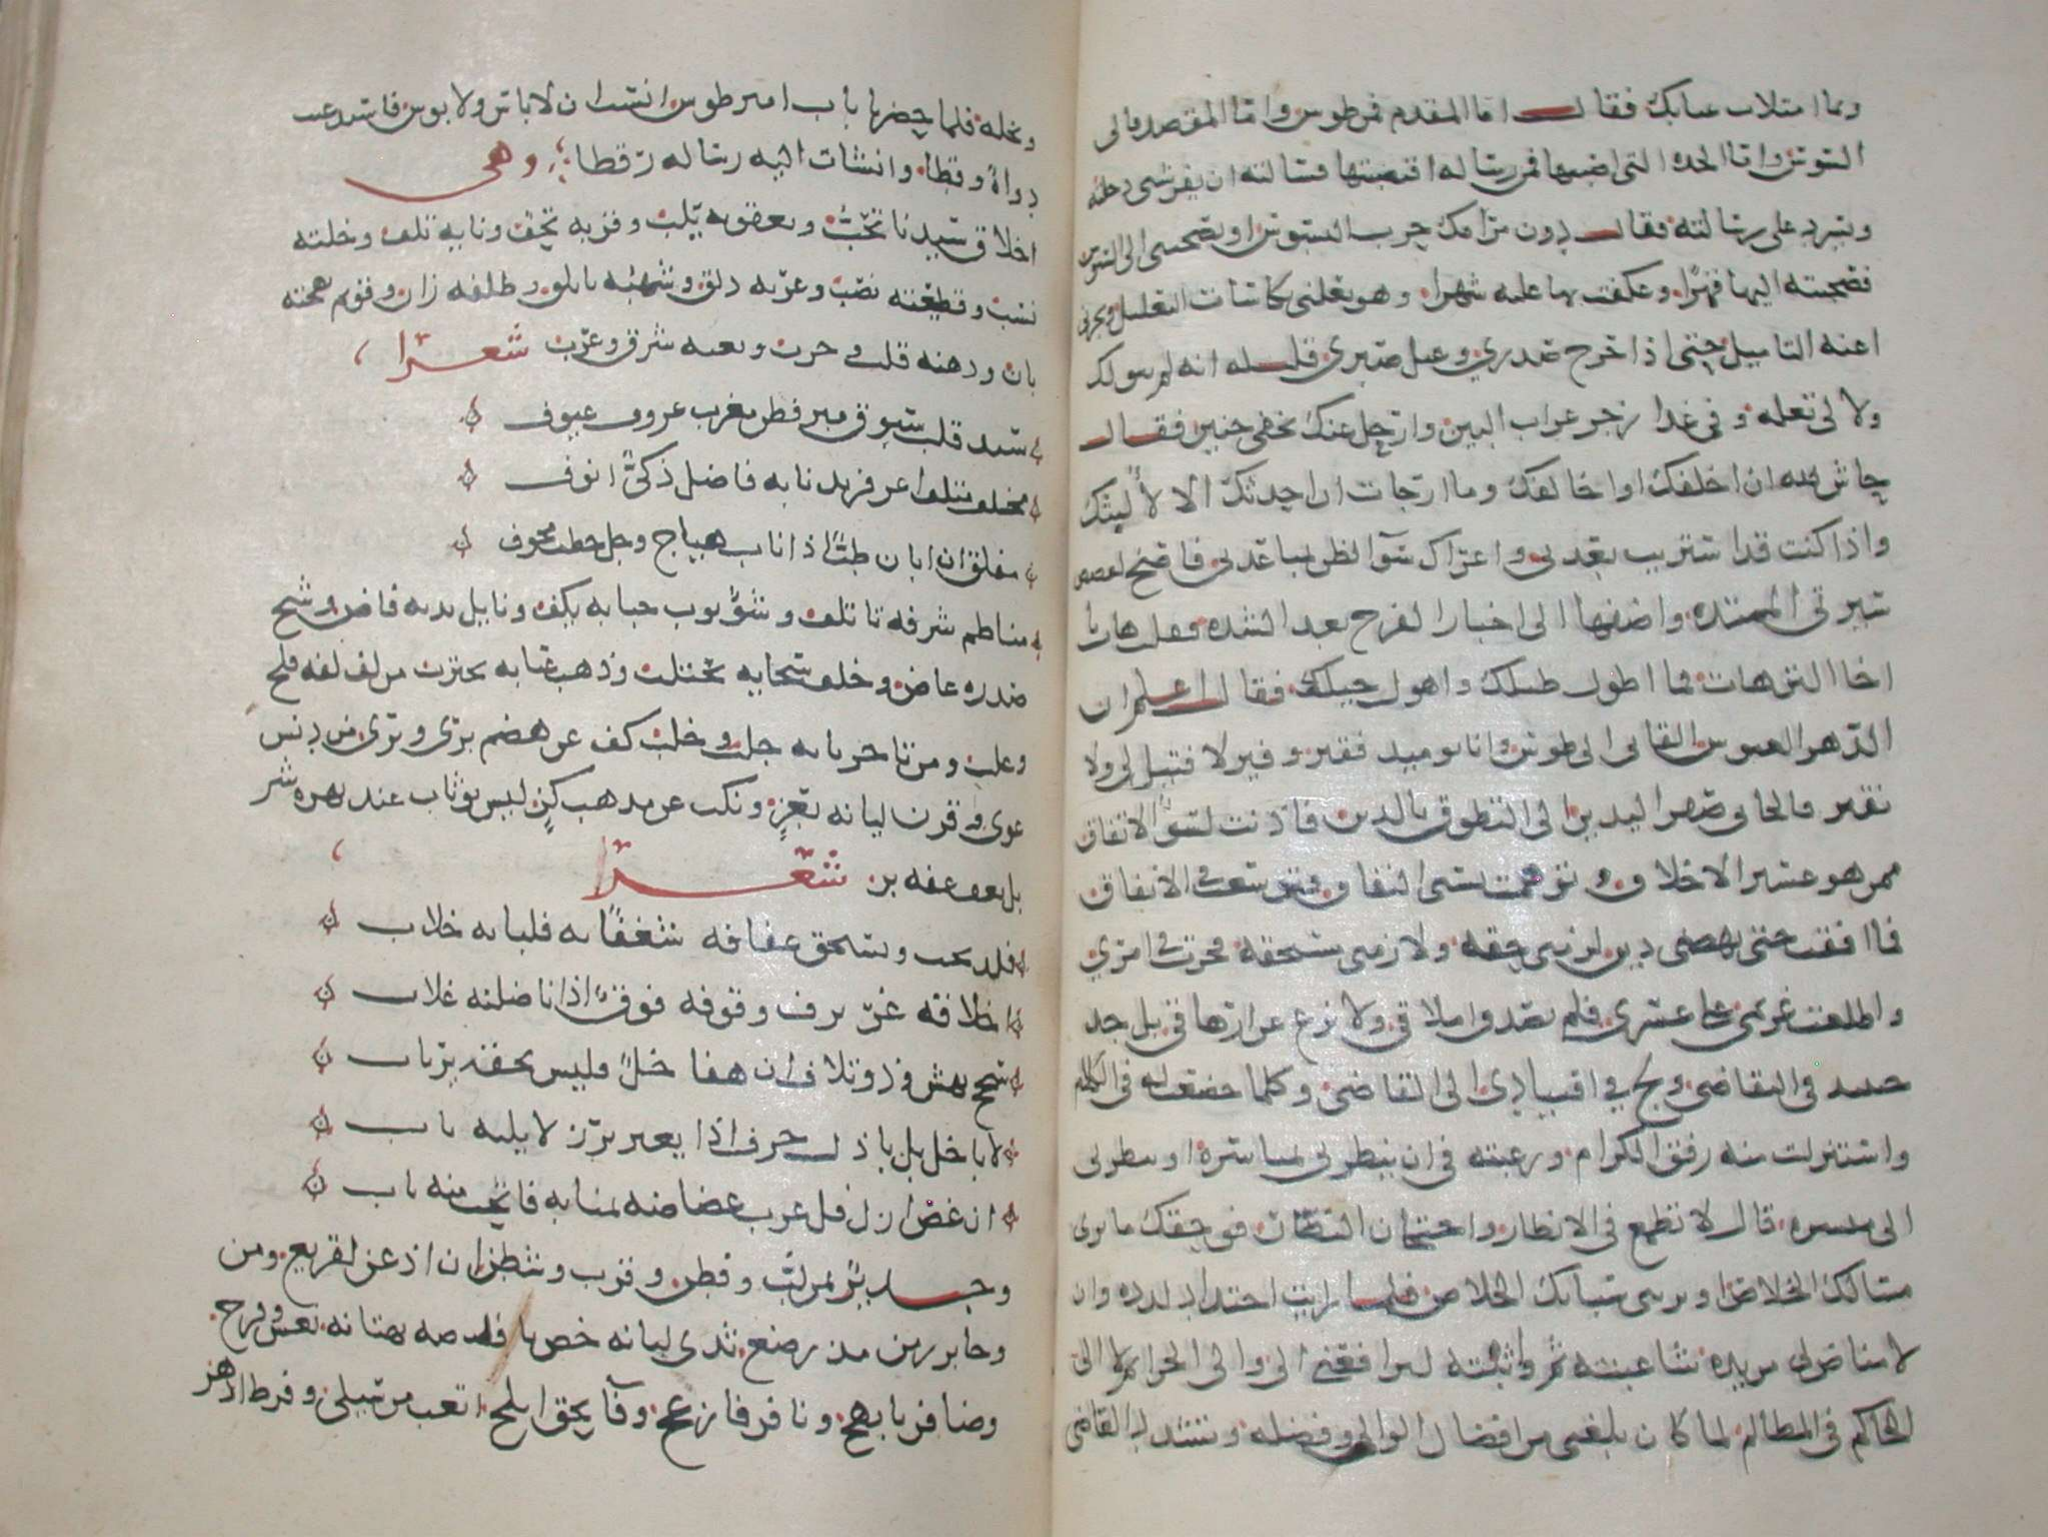 وبما امتلات عيابك فقال اما المقدم فمن طوس واما المقصد فالى
السوس واما الجده التي اصبتها فمن رساله اقتضبتها فسالته ان يفرشني دخلته
ويسرد علي رسالته فقال دون مرامك حرب البسوس او تصحبني الى السوس
فصحبته اليها قهرا وعكفت بها عليه شهرا وهو يعلني كاسات التعليل ويجرني
اعنه التاميل حتى اذا حرج صدري وعيل صبري قلت له انه لم يبق لك
ولا لي تعله وفي غد ازجر غراب البين وارتحل عنك بخفي حنين فقال
حاش لله ان اخلفك او اخالفك وما ارجات ان احدثك الا لالبثك
واذا كنت قد استربت بعدتي واغراك سوء الظن بمباعدتي فاصخ لقصص
سيرتي الممتده واضفها الى اخبار الفرج بعد الشده فقلت هات يا
اخا الترهات فما اطول طيلك واهول حيلك فقال اعلم ان
الدهر العبوس القاني الى طوس وانا يوميذ فقير وقير لا فتيل لي ولا
نقير فالجاني صفر اليدين الى التطوق بالدين فادنت لسو الاتفاق
ممن هو عسير الاخلاق وتوهمت تسني النفاق فتوسعت في الانفاق
فما افقت حتى بهضني دين لزمني حقه ولازمني مستحقه فحرت في امري
واطلعت غريمي على عسري فلم يصدق املاقي ولا نزع عن ارهاقي بل جد
في التقاضي ولج في اقتيادي الى القاضي وكلما خضعت له في الكلام
واستنزلت منه رفق الكرام ورغبته في ان ينظر لي بمياسرة او ينظرني
الى ميسره قال لا تطمع في الانظار واحتجان النضار فوحقك ما ترى
مسالك الخلاص او تريني سبايك الخلاص فلما رايت احتداد لدده وان
لا مناص لي من يده شاغبته ثم واثبته ليرافعني الى والي الجرايم لا الى
الحاكم في المظالم لما كان بلغني من افضال الوالي وفضله وتشدد القاضي
وبخله فلما حضرنا باب امير طوس انست ان لا باس ولا بوس فاستدعيت
دواة وقطا وانشات اليه رساله رقطا وهي
اخلاق سيدنا تحب وبعقوته يلب وقربه تحف ونايه تلف وخلته
نسب وقطيعته نصب وغربه ذلق وشهبه تاتلق وظلفه زان وقويم نهجه
بان وذهنه قلب وجرب ونعته شرق وغرب شعرا
سيد قلب سبوق مبر فطن مغرب عزوف عيوف
مخلف متلف اغر فريد نابه فاضل ذكي انوف
مفلق ان ابان طب اذا ناب هياج وجل خطب مخوف
مناظم شرفه تاتلف وشؤبوب حبايه يكف ونايل يديه فاض وشح
صدره غاض وخلف سخايه يحتلب وذهب عيابه يحترب من لف لفه فلج
وغلب ومن تاجر بابه جلب وخلب كف عن هضم بري وبري من دنس
غوي وقرن ليانه بعز ونكب عن مذهب كز ليس بوثاب عند نهزه شر
بل يعف عفه بر شعرا
فلذ يحب ويستحق عفافه شغفا به فلبابه خلاب
اخلاقه غر ترف وفوقه فوق اذا ناضلته غلاب
سجح يهش وذو تلاف ان هفا خل فليس بحقه يرتاب
لا باخل بل باذل خرف اذا يعتر برز لا يليه باب
ان عض ازل فل غرب عضاضه بمنابه فانحت منه ناب
وجدير بمن لب وفطن وقرب وشطن ان اذعن لقريع زمن
وجابر زمن مذ رضع ثدي لبانه خص بافاضه تهتانه نعش وفرج
وضافر فابهج ونافر فازعج وفاء بحق ابلج اتعب من سيلي وقرط اذ هز